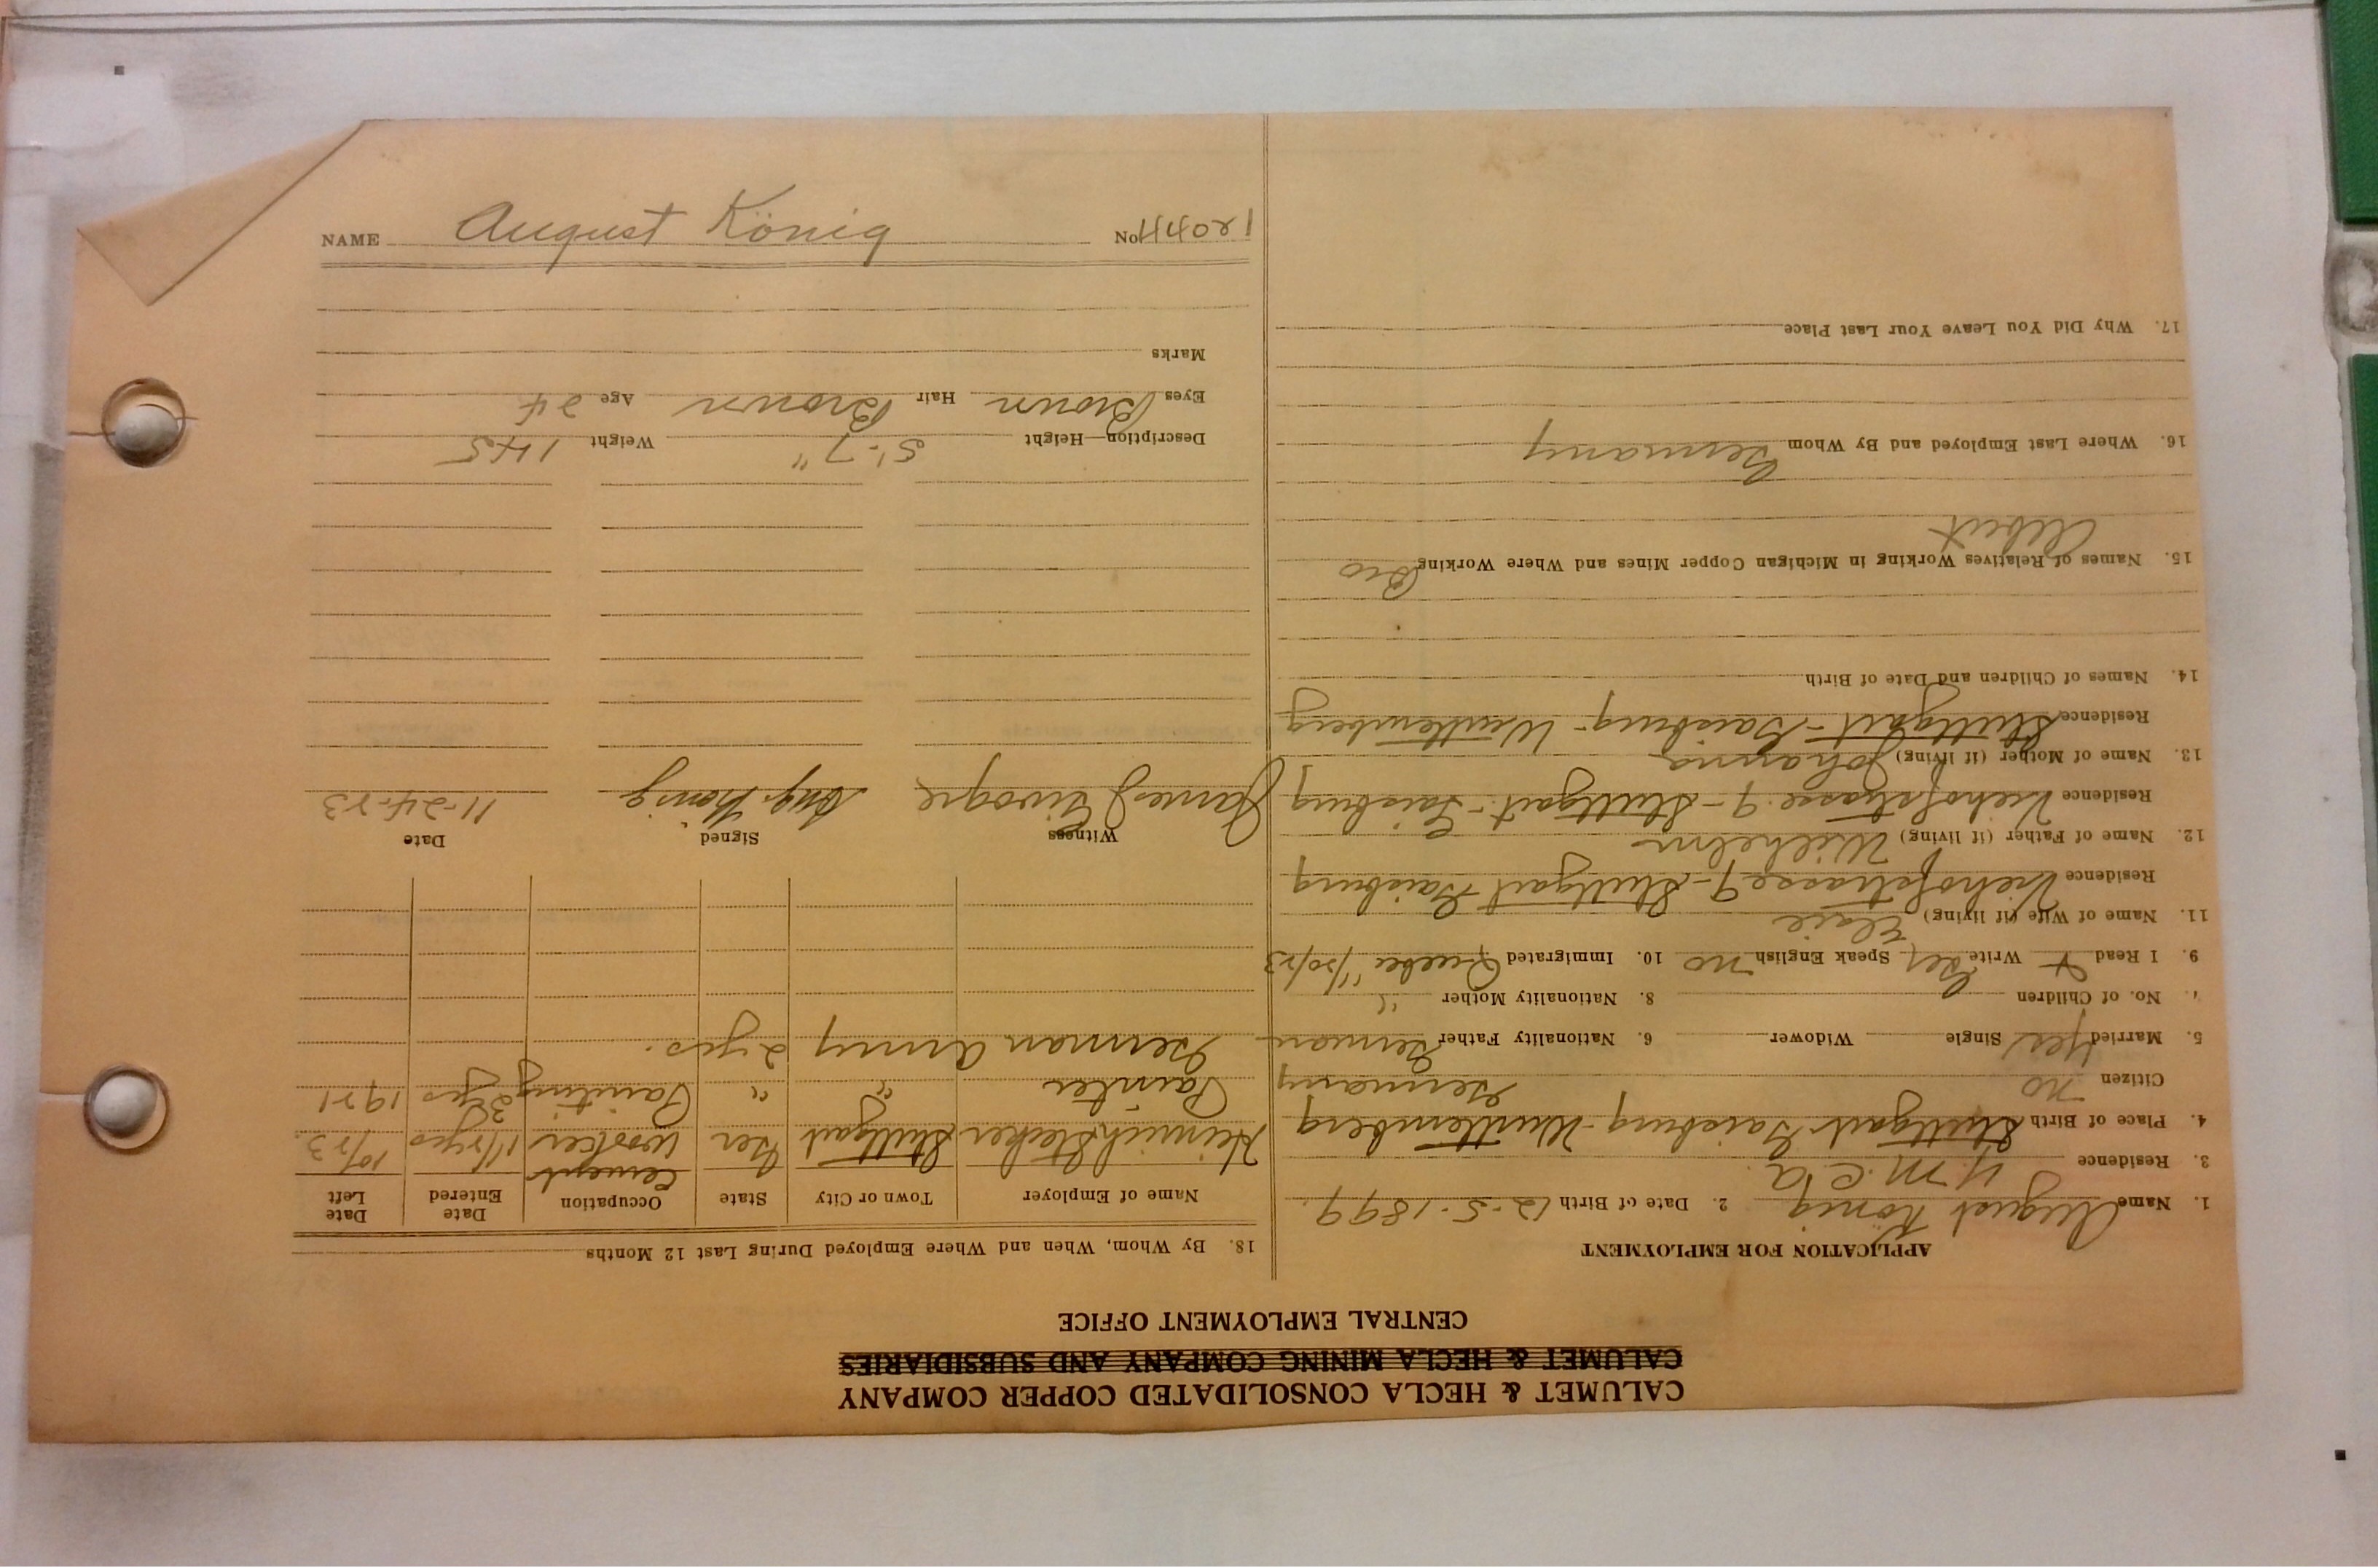 CALUMET & HECLA CONSOLIDATED COPPER COMPANY
CALUMET & HECLA MINING COMPANY AND SUBSIDIARIES
CENTRAL EMPLOYMENT OFFICE
APPLICATION FOR EMPLOYMENT
1. Name August König 2. Date of Birth 12-5-1899.
3. Residence Y.M.C.A.
4. Place of Birth Stuttgart Gaisburg-Wurttemberg
Germany
Citizen no
5. Married Yes Single Widower 6. Nationality Father German
7. No. of Children 8. Nationality Mother "
9. I Read + Write Ger Speak English no 10. Immigrated Quebec 11/20/23
11. Name of Wife (if living)
Residence Viehofstrasse 9-Stuttgart Gaisburg
12. Name of Father (if living) Wilhelm
Residence Viehofstrasse 9-Stuttgart-Gaisburg
13. Name of Mother (if living) Johanna
Residence Stuttgart-Gaisburg-Wurttemberg
14. Names of Children and Date of Birth
15. Names of Relatives Working in Michigan Copper Mines and Where Working Bro
Albert
16. Where Last Employed and By Whom Germany
17. Why Did You Leave Your Last Place
18. By Whom, When and Where Employed During Last 12 Months
Name of Employer Town or City State Occupation Date Entered Date Left
Heinrich Stecker Stuttgart Ger Cement Worker 1 1/2 yrs 10/23.
Painter " " Painting 3 yrs 1921
German Army 2 yrs.
Witness Signed Date
James J Aug. König 11-24-23
Description—Height 5'-7" Weight 145
Eyes Brown Hair Brown Age 24
Marks
NAME August König No. 12044